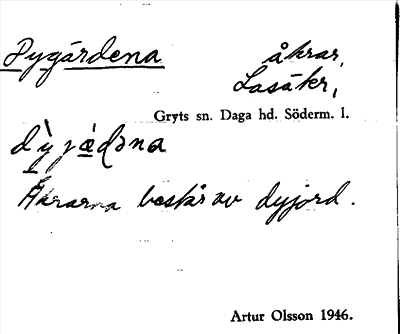 Dygärdena åkrar,
Lasåkr,
Gryts sn. Daga hd. Söderm. l.
Åkrarna består av dyjord.
Artur Olsson 1946.